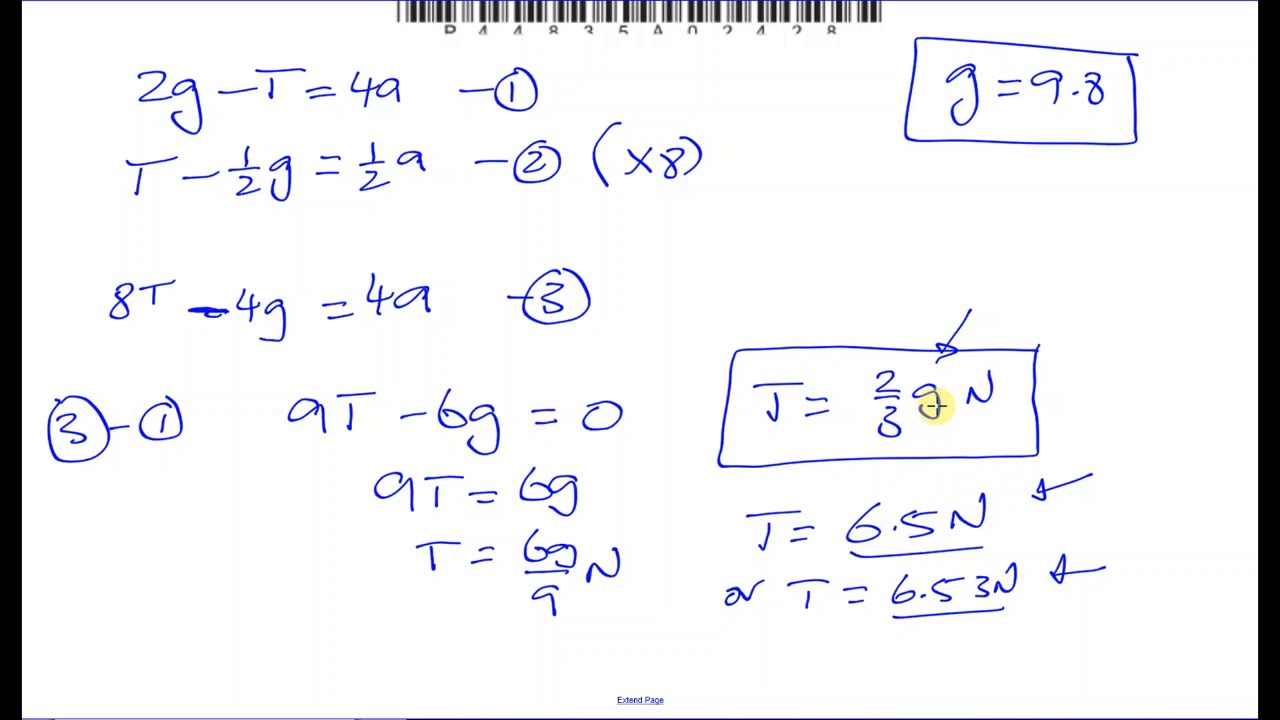 P44835A02428
g = 9.8
2g - T = 4a - ①
T - 1/2 g = 1/2 a - ② (×8)
8T - 4g = 4a - ③
③ - ① 9T - 6g = 0
9T = 6g
T = 6g/9 N
T = 2/3 g N
T = 6.5N
or T = 6.53N
Extend Page